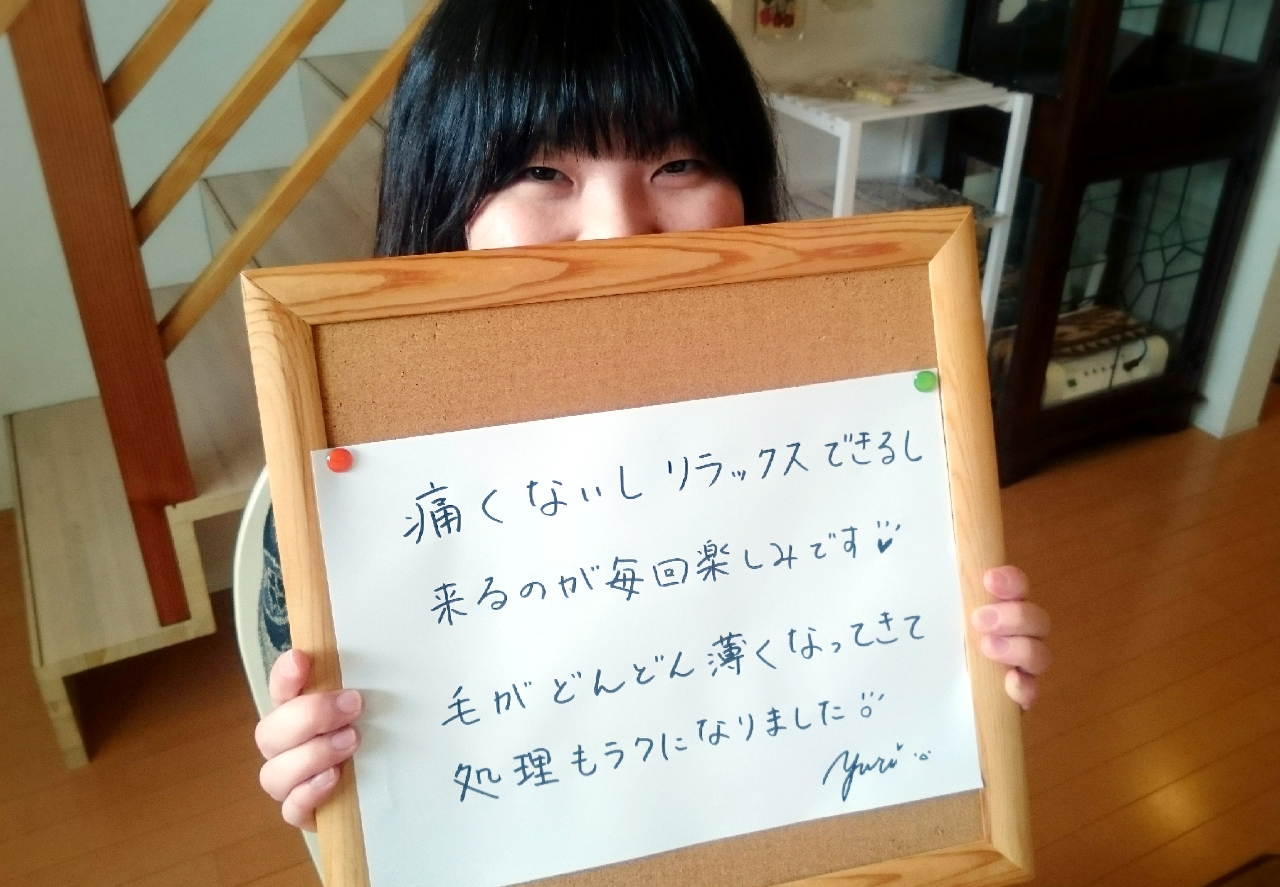 痛くないしリラックスできるし
来るのが毎回楽しみです
毛がどんどん薄くなってきて
処理もラクになりました
yuri